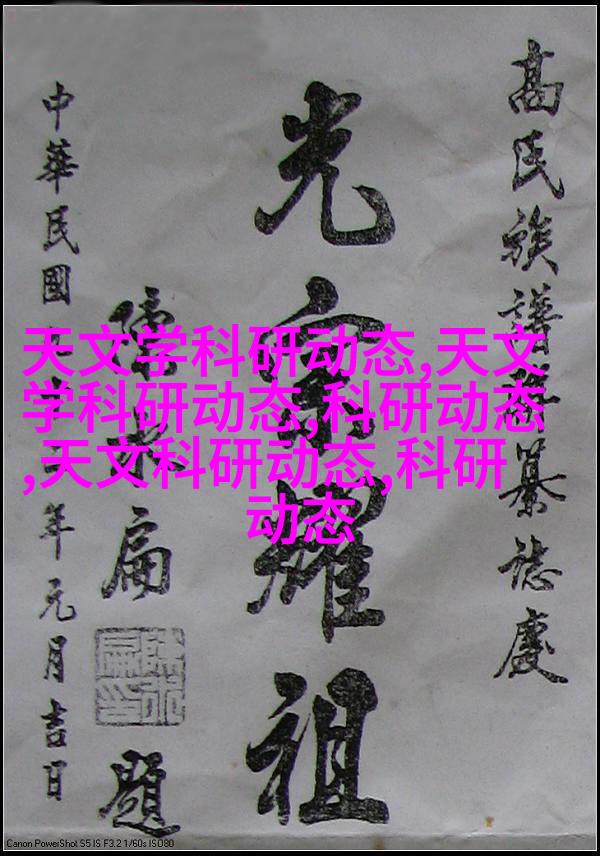 高氏族譜纂誌慶
光宗耀祖
陳水扁
題
中華民國年元月吉日
天文学科研动态,天文
学科研动态,科研动态
,天文科研动态,科研
动态
Canon PowerShot S5 IS F3.2 1/60s ISO80